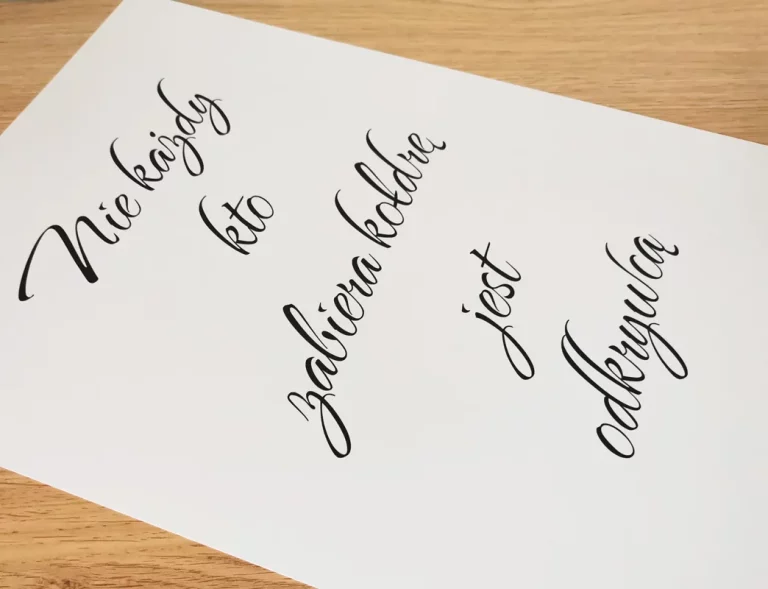 Nie każdy
kto
zabiera kołdrę
jest
odkrywcą